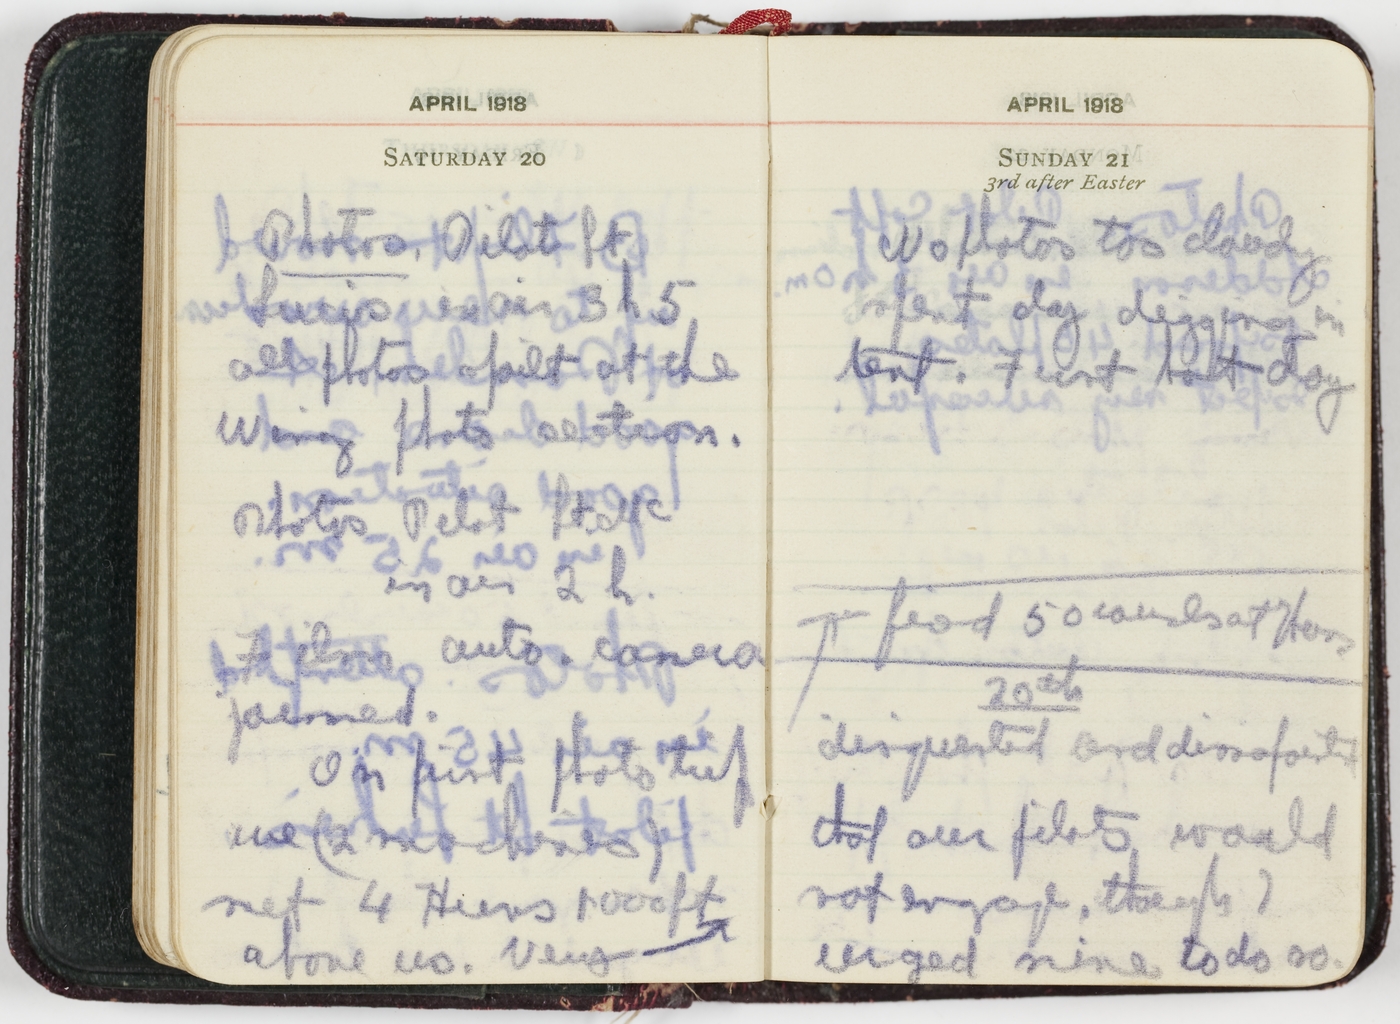 APRIL 1918
SATURDAY 20
Photos. Pilot Lt
in air 3 h 5
all photos spoilt at the
Wing photo section.
Photos Pilot
in air 2 h.
Films auto. camera
jammed.
On first photo trip
we (2 machines)
met 4 Huns 1000 ft
above us. Very →
APRIL 1918
SUNDAY 21
3rd after Easter
No photos too cloudy
spent day digging in
tent. First hot day
fired 50 rounds at Huns
20th
disgusted and dissapointed
that our pilots would
not engage, though I
urged mine to do so.